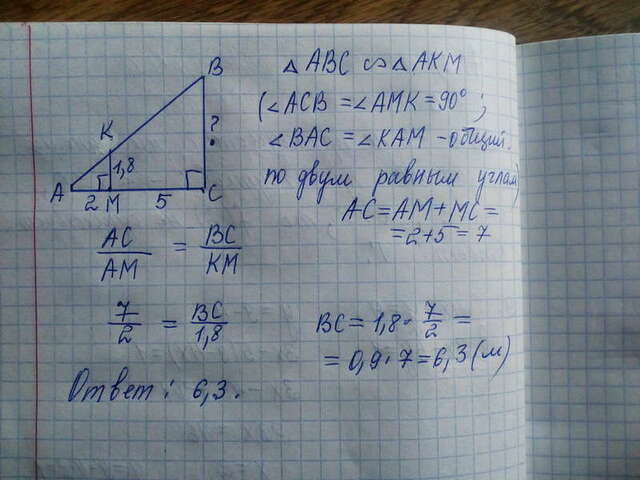 B
K
1,8
?
A
2 M 5 C
△ ABC ∽ △ AKM
(∠ACB = ∠AMK = 90°;
∠BAC = ∠KAM - общий.
по двум равным углам)
AC = AM + MC =
= 2+5 = 7
AC/AM = BC/KM
7/2 = BC/1,8
BC = 1,8 · 7/2 =
= 0,9 · 7 = 6,3 (м)
Ответ: 6,3.